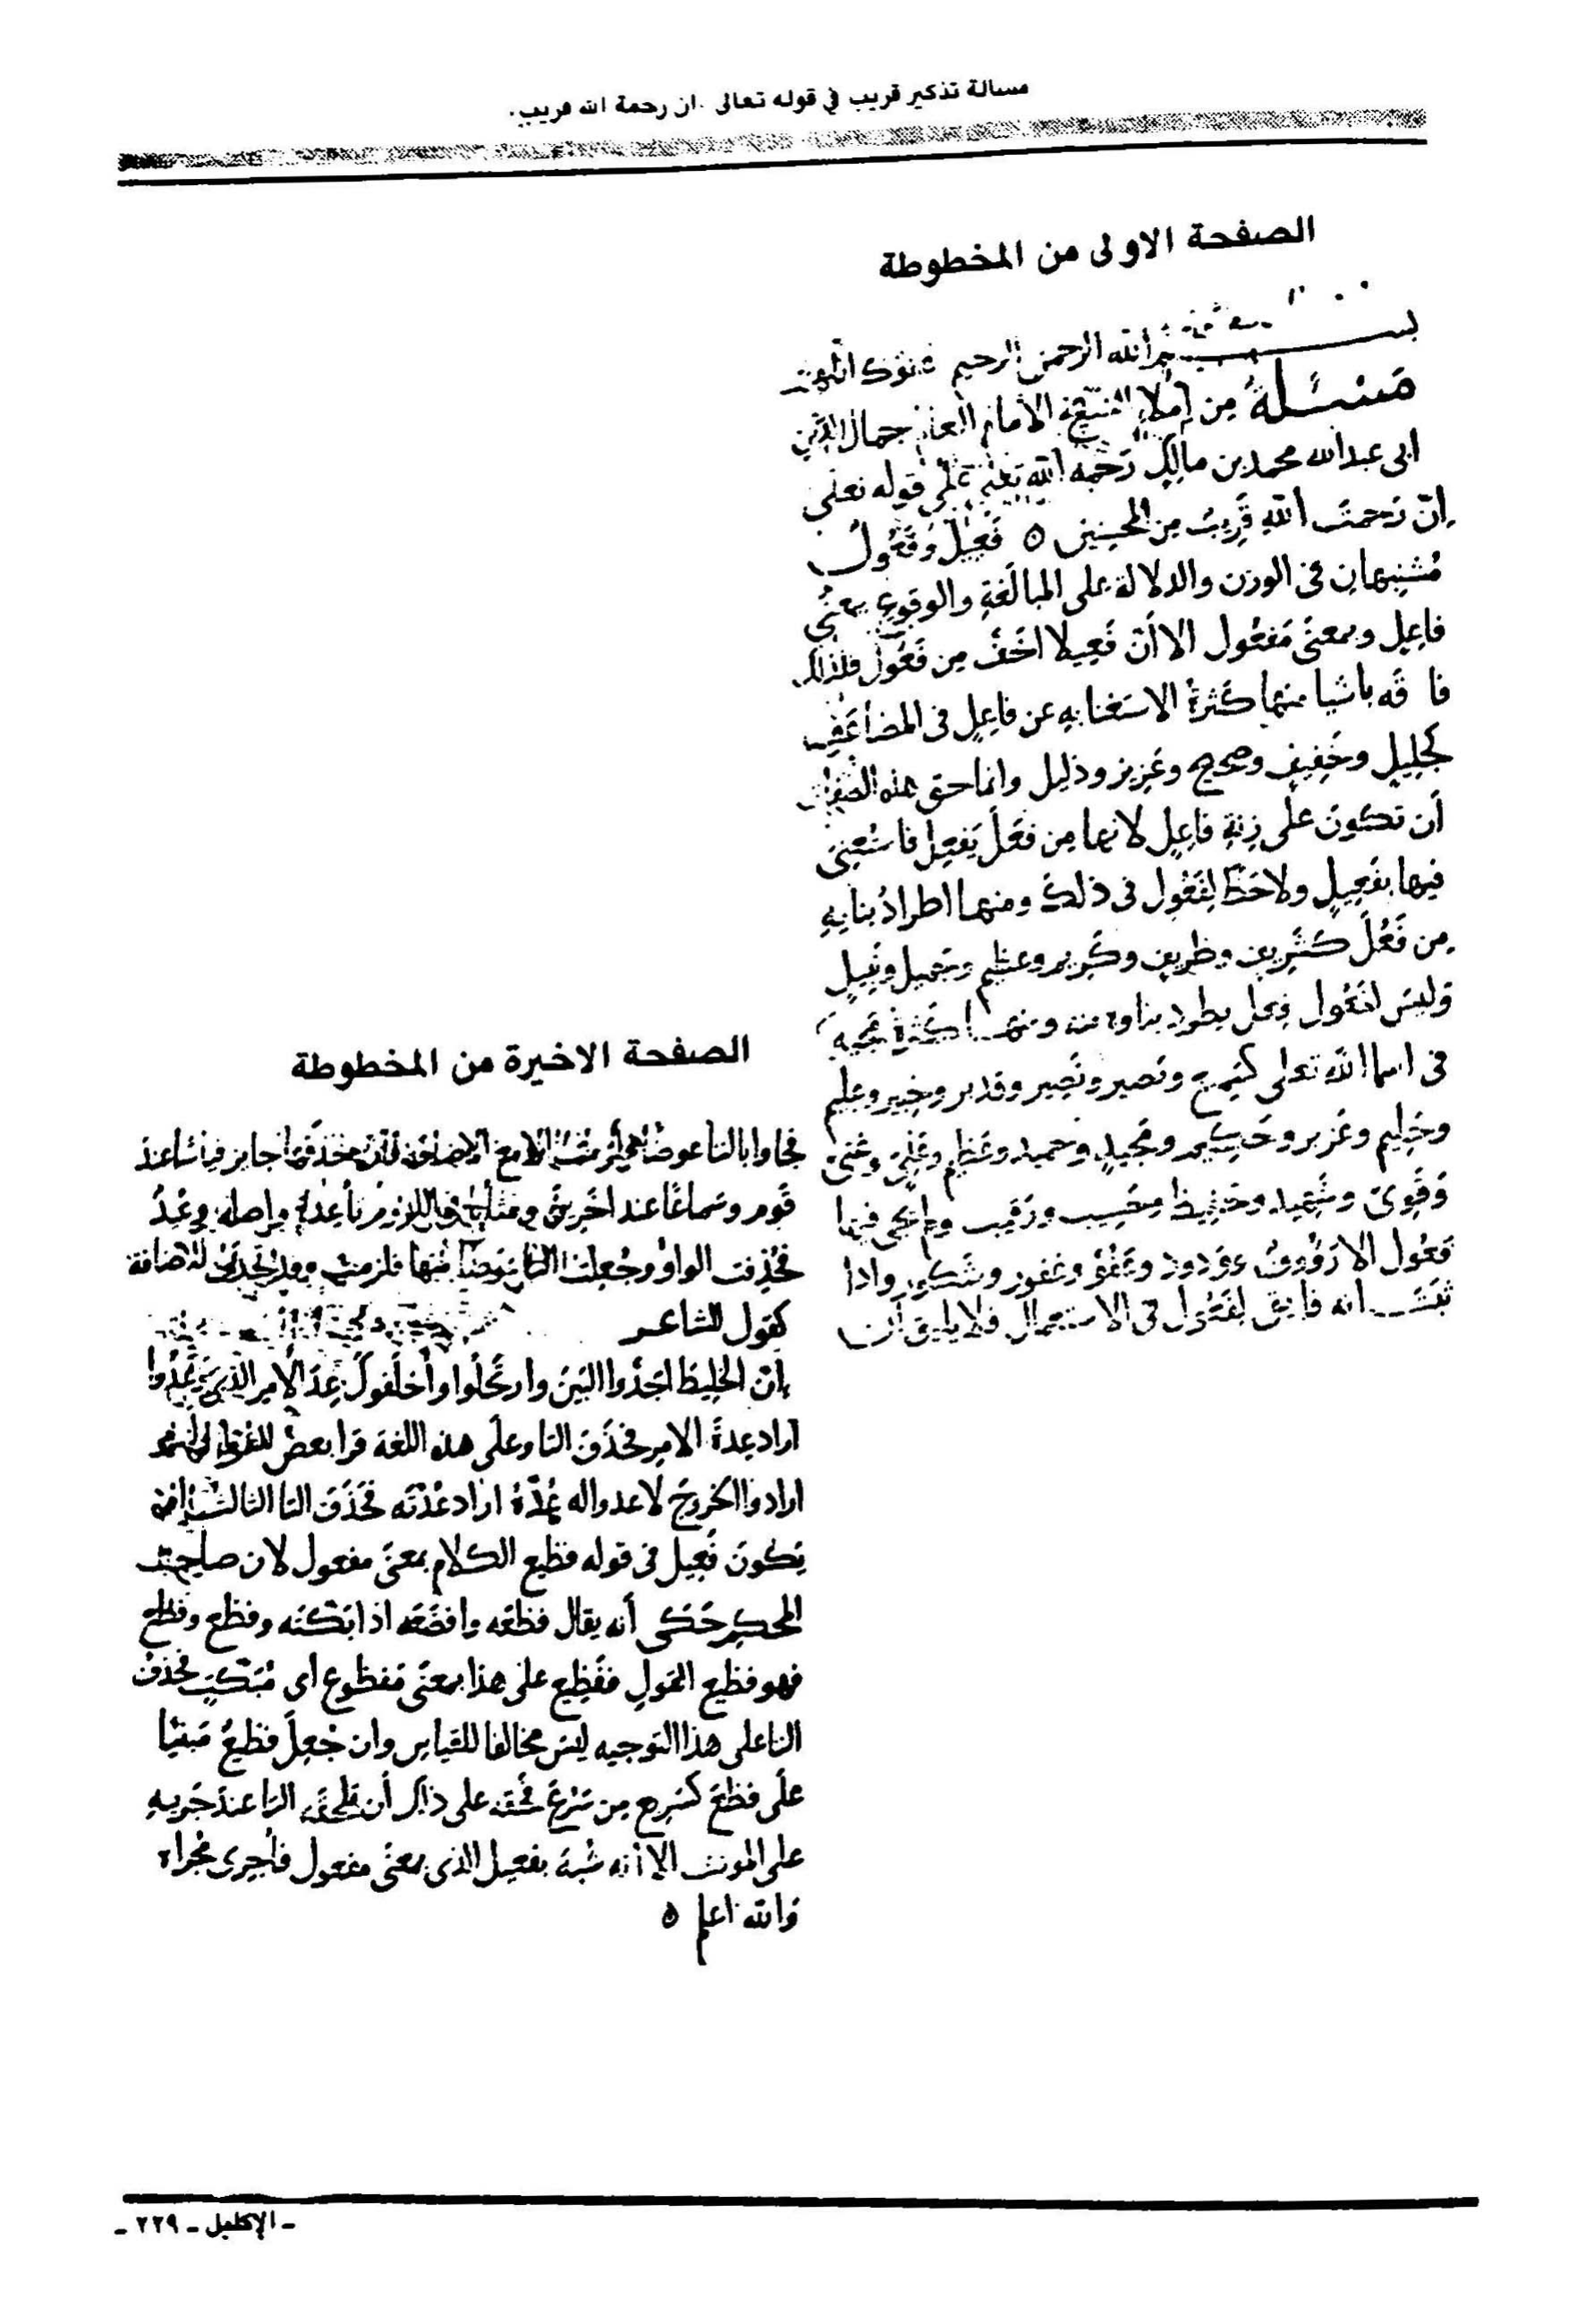 مسالة تذكير قريب في قوله تعالى .ان رحمة الله قريب.
الصفحة الاولى من المخطوطة
بسم الله الرحمن الرحيم عونك اللهم
مَسْئَلَةٌ مِن إملاء الشيخ الامام العلامة جمال الدين
ابى عبدالله محمد بن مالكٍ رَحمَهُ الله تعلى على قوله تعلى
إنّ رَحمتَ اللهِ قَرِيبٌ مِن المحسِنِين ٥ فَعِيلٌ وَفَعُولٌ
مُشتبِهانِ فى الوزن والدلالة على المبالَغةِ والوقوعِ بمعنى
فاعِلٍ وبمعنَى مَفعُول الا أنّ فَعِيلا اخَفُّ مِن فَعُولٍ فلذلك
فاقه باشيا منها كثرةُ الاستغنا بهِ عن فاعِلٍ فى المضاعَفِ
كجَلِيلٍ وخَفِيفٍ وصحيح وعَزِيز وذليل وانما حق هذه الصفات
أن تكونَ على زِنةِ فاعِلٍ لانها مِن فَعَلَ يَفعِل فاستُغنِىَ
فيها بفَعِيلٍ ولاحَظّ لِفَعُول فى ذلك ومنها اطرادُ بنايهِ
مِن فَعُلَ كشَرِيفٍ وظريفٍ وكَرِيم وعظيم وجميل ونَبِيلٍ
وليسَ لفَعُول فِعل يطرد بناوه منه ومنها كثرة مجيه
فى اسما الله تعلى كسَميع وبَصير ونَصِير وقدير وخبير وعليم
وحَلِيم وعَزيز وحَكِيم ومَجِيدٍ وحميد وعَظِيم وعَلِىّ وغنىّ
وَقَوِىّ وشَهِيد وحفيظ وحَسِيب ورَقيب ولم يجى فيها
فَعُول الا رَؤُوفٌ ووَدود وعَفُوّ وغفور وشكور واذا
ثبتَ انه فايق لِفَعُول فى الاستعمال فلا يليق أن
الصفحة الاخيرة من المخطوطة
فجاوا بالتا عوضًا
قَوم وسَماعًا عند اخَرِينَ ومثاله فى اللزوم تا عِدةٍ واصله وعدٌ
فحُذِفت الواوُ وجُعِلت التا عِوَضًا مِنها فلزمت وقد تُحذفُ للاضافة
كقول الشاعر
إنّ الخليطَ اجَدُّوا البَينَ وارتَحَلُوا وأخلَفوكَ عِدَ الأمر الذى وَعَدُوا
اراد عِدةَ الامرِ فحذفَ التا وعلى هذه اللغة قرا بعضُ
ارادوا الخروجَ لاعدوا له عُدّهُ اراد عُدّتَه فحَذَف التا الثالثُ أن
يكونَ فَعِيل فى قوله فظيع الكلام بمعنى مفعول لان صاحِبَ
المحكم حَكى أنه يقال فظعَه وافظعَه اذا بَكّتَه وفظع وفظع
فهو فظيع القولِ ففَظِيع على هذا بمعنى مَفظوع اى مُبَكّتٍ فحذفُ
التا على هذا التوجيه ليسَ مخالفا للقياسِ وان جُعِلَ فظيعُ مَبنيًا
على فظُعَ كسَرِيع مِن سَرُعَ فحَقه على ذلك أن تلحَقَه التا عند جَريهِ
على المونث الا أنه شُبهَ بفعيل الذى بمعنى مفعول فأجرِى مُجراه
وَالله اعلم ٥
ـ الإكليل ـ ٢٢٩ ـ